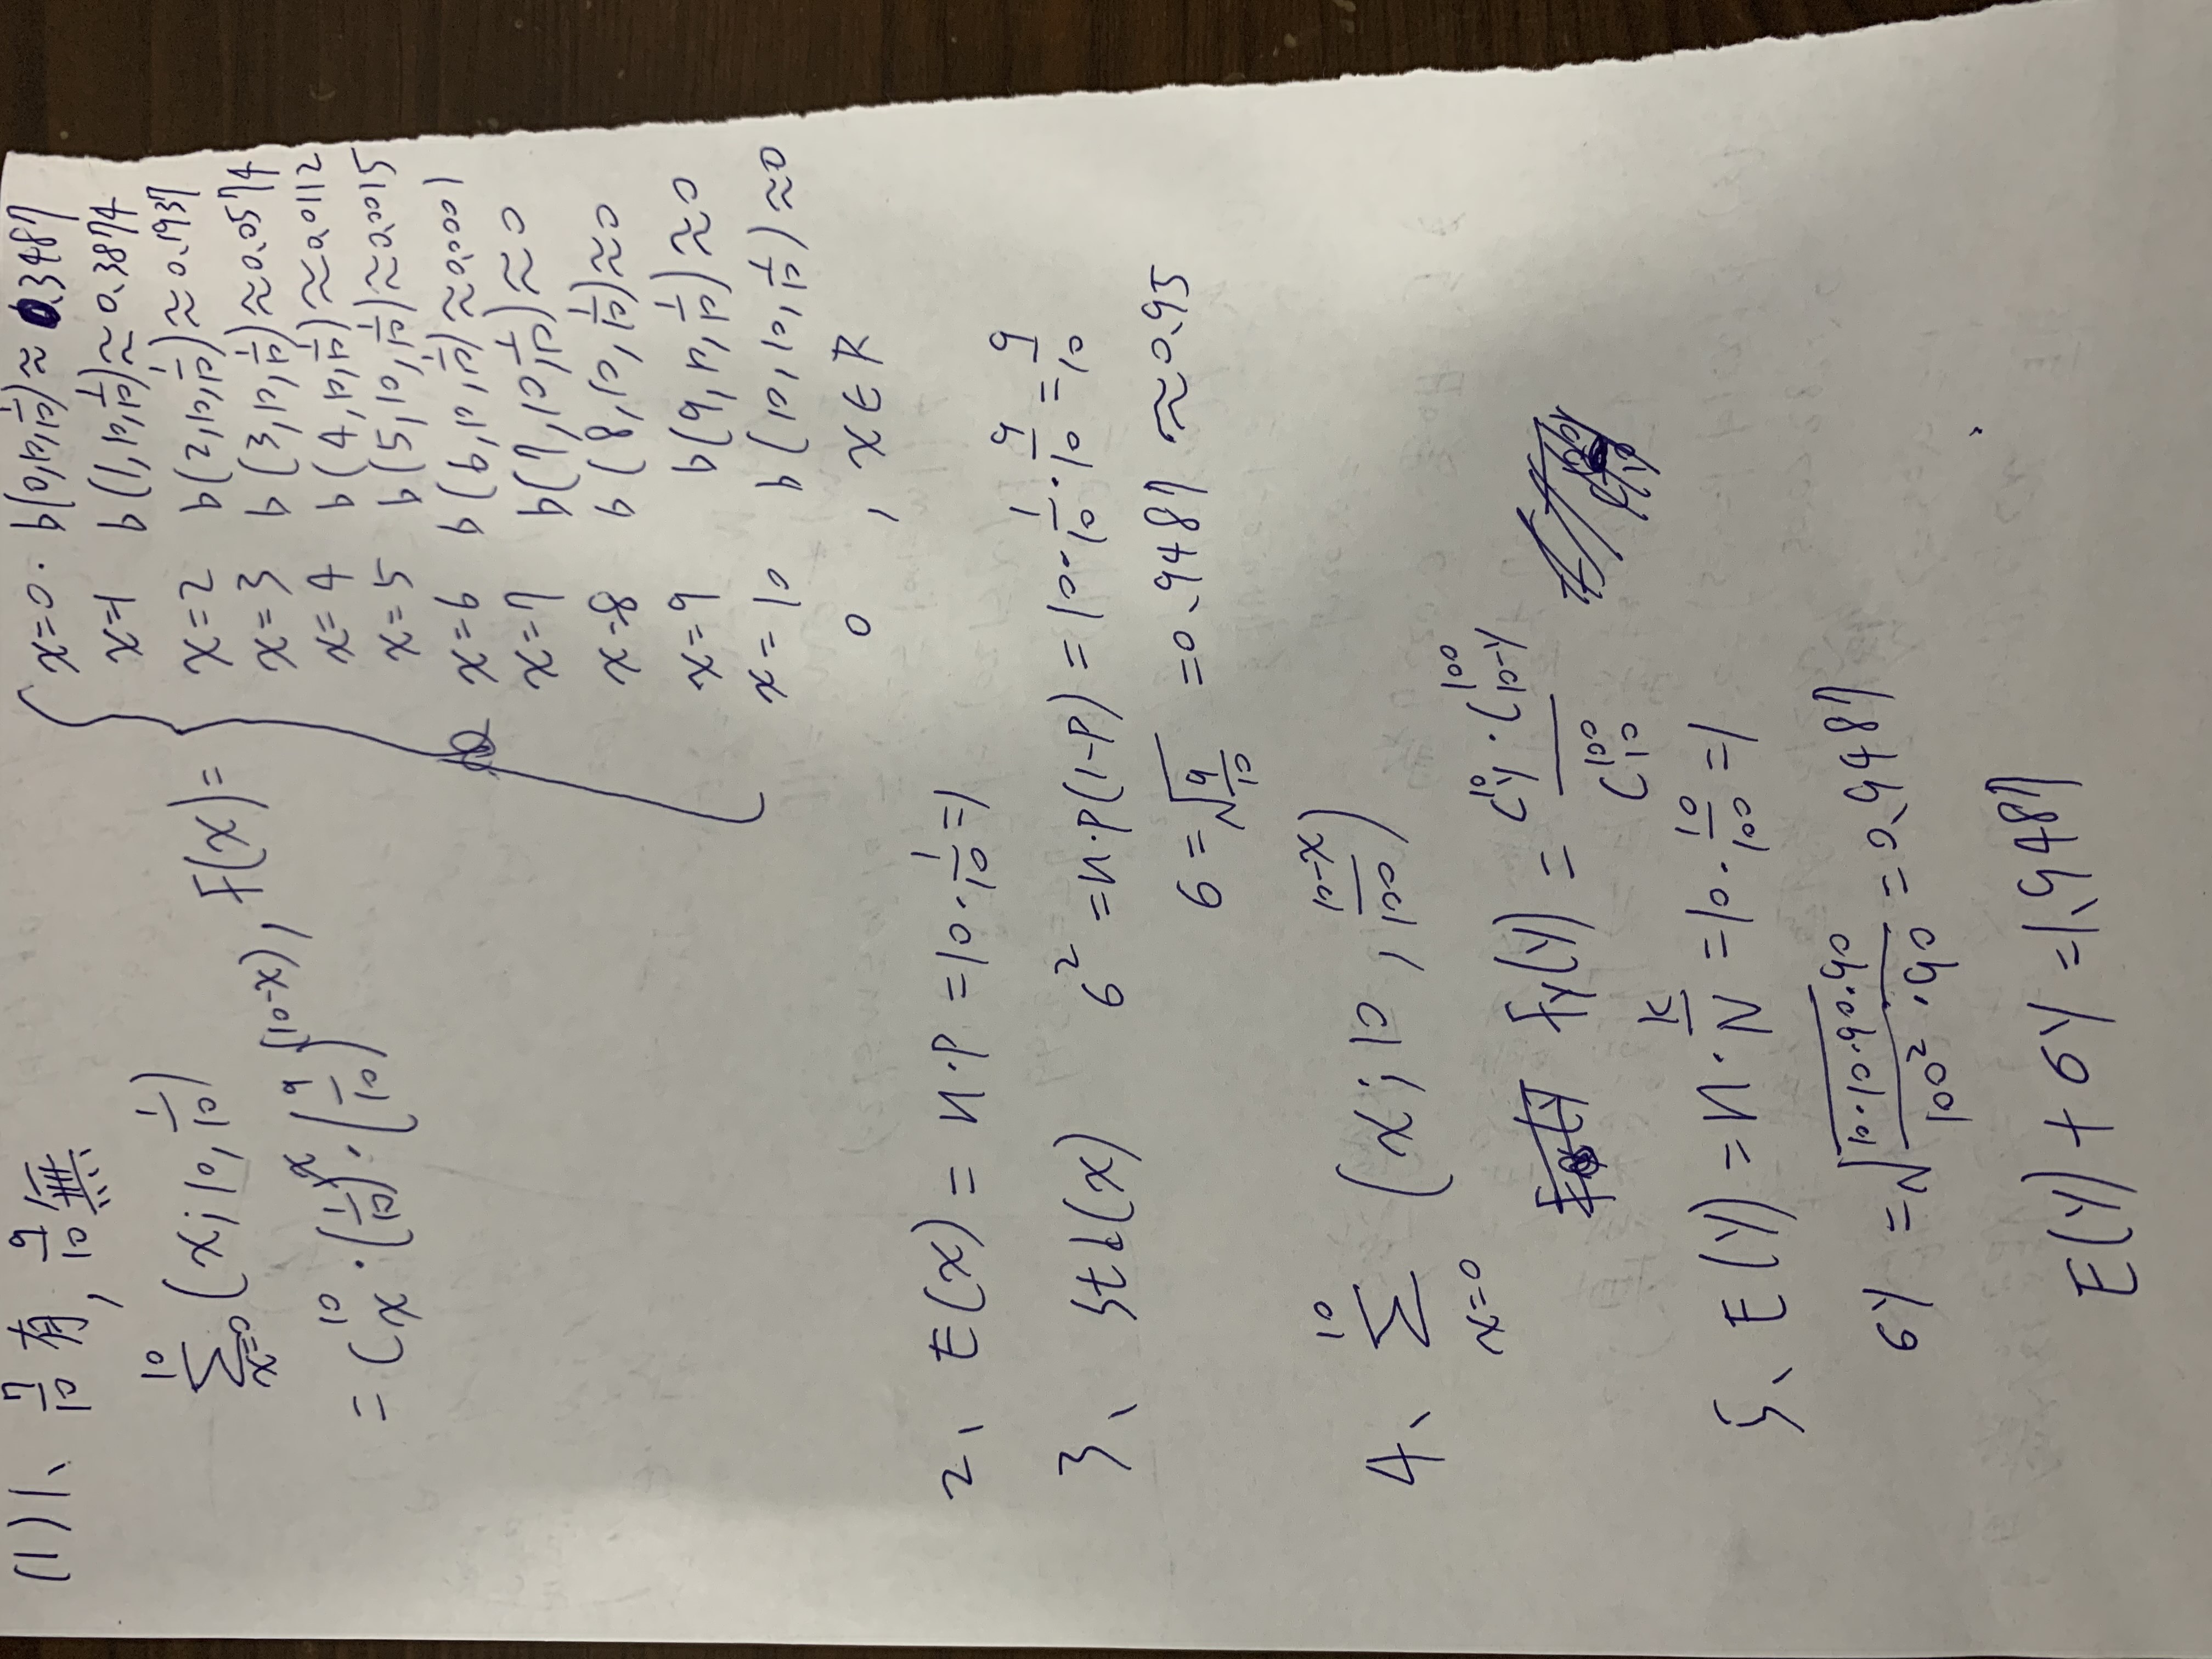 (1) 1、 7/10 有, 9/10 無
∑_{x=0}^{10} (x; 10, 1/10)
= C^{10}_x · (1/10)^x · (9/10)^{(10-x)}, F(x) = {
x=0. b(0,10,1/10) ≈ 0.3487
x=1 b(1,10,1/10) ≈ 0.3874
x=2 b(2,10,1/10) ≈ 0.1937
x=3 b(3,10,1/10) ≈ 0.0574
x=4 b(4,10,1/10) ≈ 0.0112
x=5 b(5,10,1/10) ≈ 0.0015
x=6 b(6,10,1/10) ≈ 0.0001
x=7 b(7,10 1/10) ≈ 0
x=8 b(8,10,1/10) ≈ 0
x=9 b(9,10,1/10) ≈ 0
x=10 b(10,10,1/10) ≈ 0
0 , x∈R
2、 E(x) = n·p = 10·1/10 = 1
3、 std(x) σ² = n·p(1-p) = 10·1/10·9/10 = 9/10
σ = √(9/10) = 0.9487 ≈ 0.95
4、 ∑_{x=0}^{10} (x; 10, (10-x)/100)
F_Y(Y) = C^{10}_Y · C^{100}_{10-Y} / C^{100}_{10}
5、 E(Y) = n·K/N = 10·10/100 = 1
σY = √(10·10·90·90 / 100²·90) = 0.9487
E(Y) + σY = 1.9487